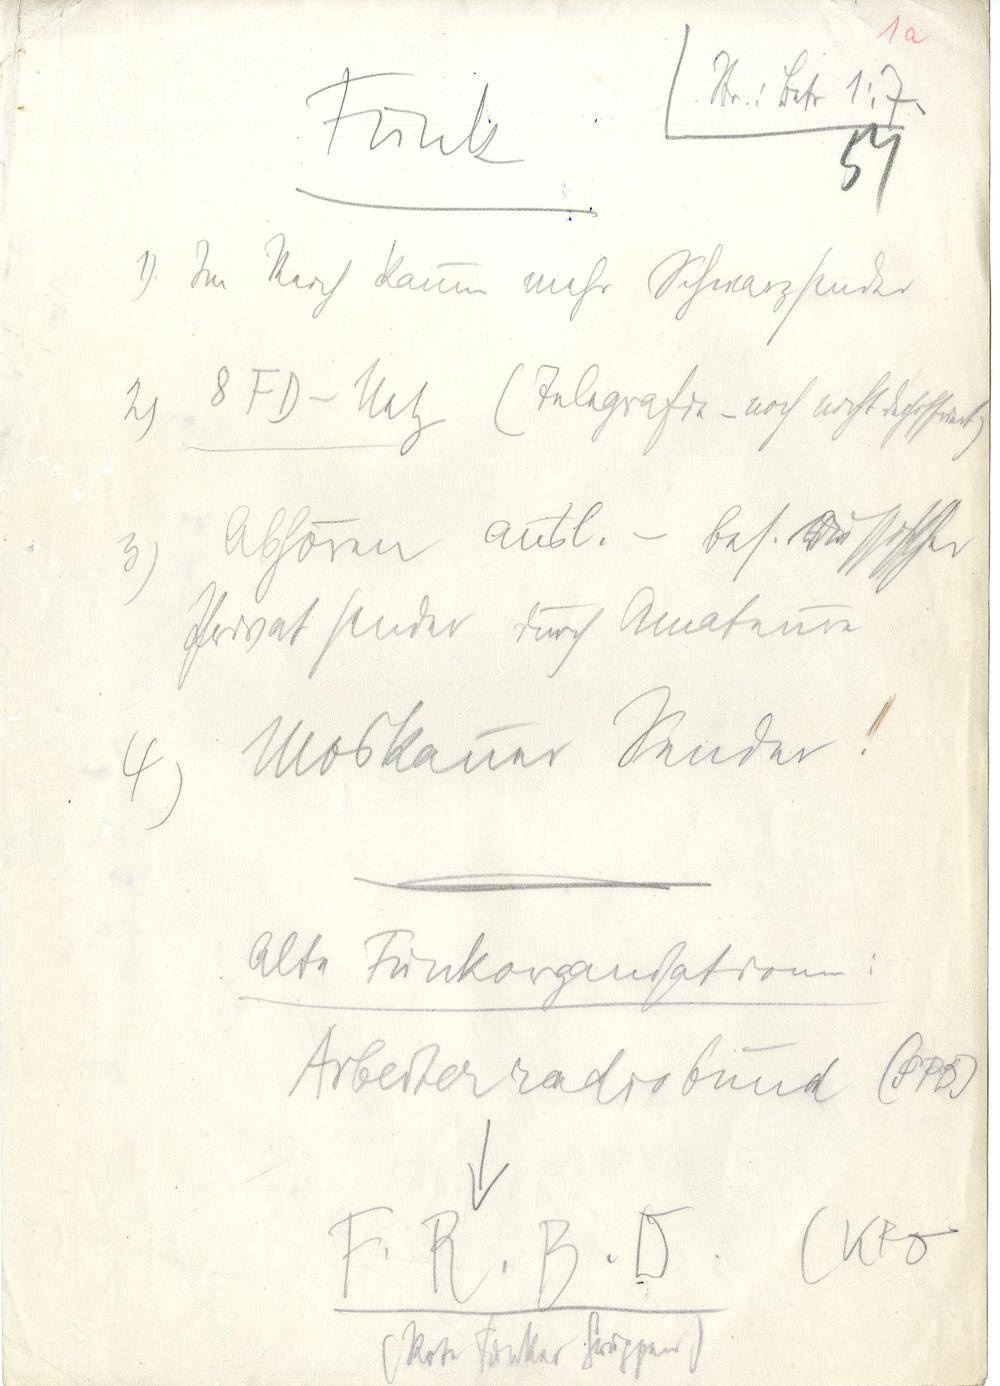 1a
Funk
1:7.
54
1) Im Reich kaum mehr Schwarzsender
2) 8 FD-Netz (Telegrafie - noch nicht dechiffriert)
3) Abhören ausl. - bes. russischer
Privatsender durch Amateure
4) Moskauer Sender!
Alte Funkorganisationen:
Arbeiterradiobund (SPD)
↓
F. R. B. D. (KPD
(Rote Funker Gruppen)